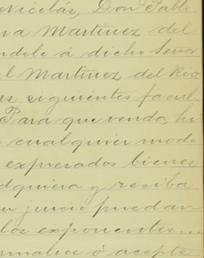 Nicolás, Don Pablo
va Martinez del
ndole á dicho Señor
l Martinez del Rio
as siguientes facul
Para que venda, hi
cualquier modo
expresados bienes
dquiera y reciba
u juicio puedan
los exponentes
rmalice ó acepte